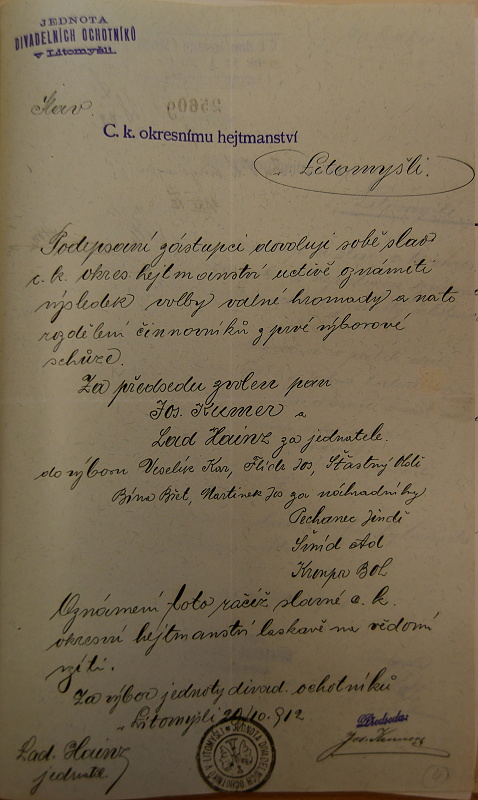 JEDNOTA
DIVADELNÍCH OCHOTNÍKŮ
v Litomyšli.
Slav.
25609
C. k. okresnímu hejtmanství
v Litomyšli.
Podepsaní zástupci dovolují sobě slav
c. k. okres hejtmanství uctivě oznámiti
výsledek volby valné hromady a na to
rozdělení činnovníků z prvé výborové
schůze.
Za předsedu zvolen pan
Jos. Kumer a
Lad Hainz za jednatele.
do výboru Veselík Kar, Flídr Jos, Šťastný
Bína Břet, Martinek Jos za náhradníky
Pechanec Jindř
Šmíd Ad
Kroupa Boh
Oznámení toto račiž slavné c. k.
okresní hejtmanství laskavě na vědomí
vzíti.
Za výbor jednoty divad. ochotníků
v Litomyšli 20/10. 912
Předseda:
Jos. Kumer
Lad. Hainz
jednatel
JEDNOTA DIVADELNÍCH OCHOTNÍKŮ V LITOMYŠLI